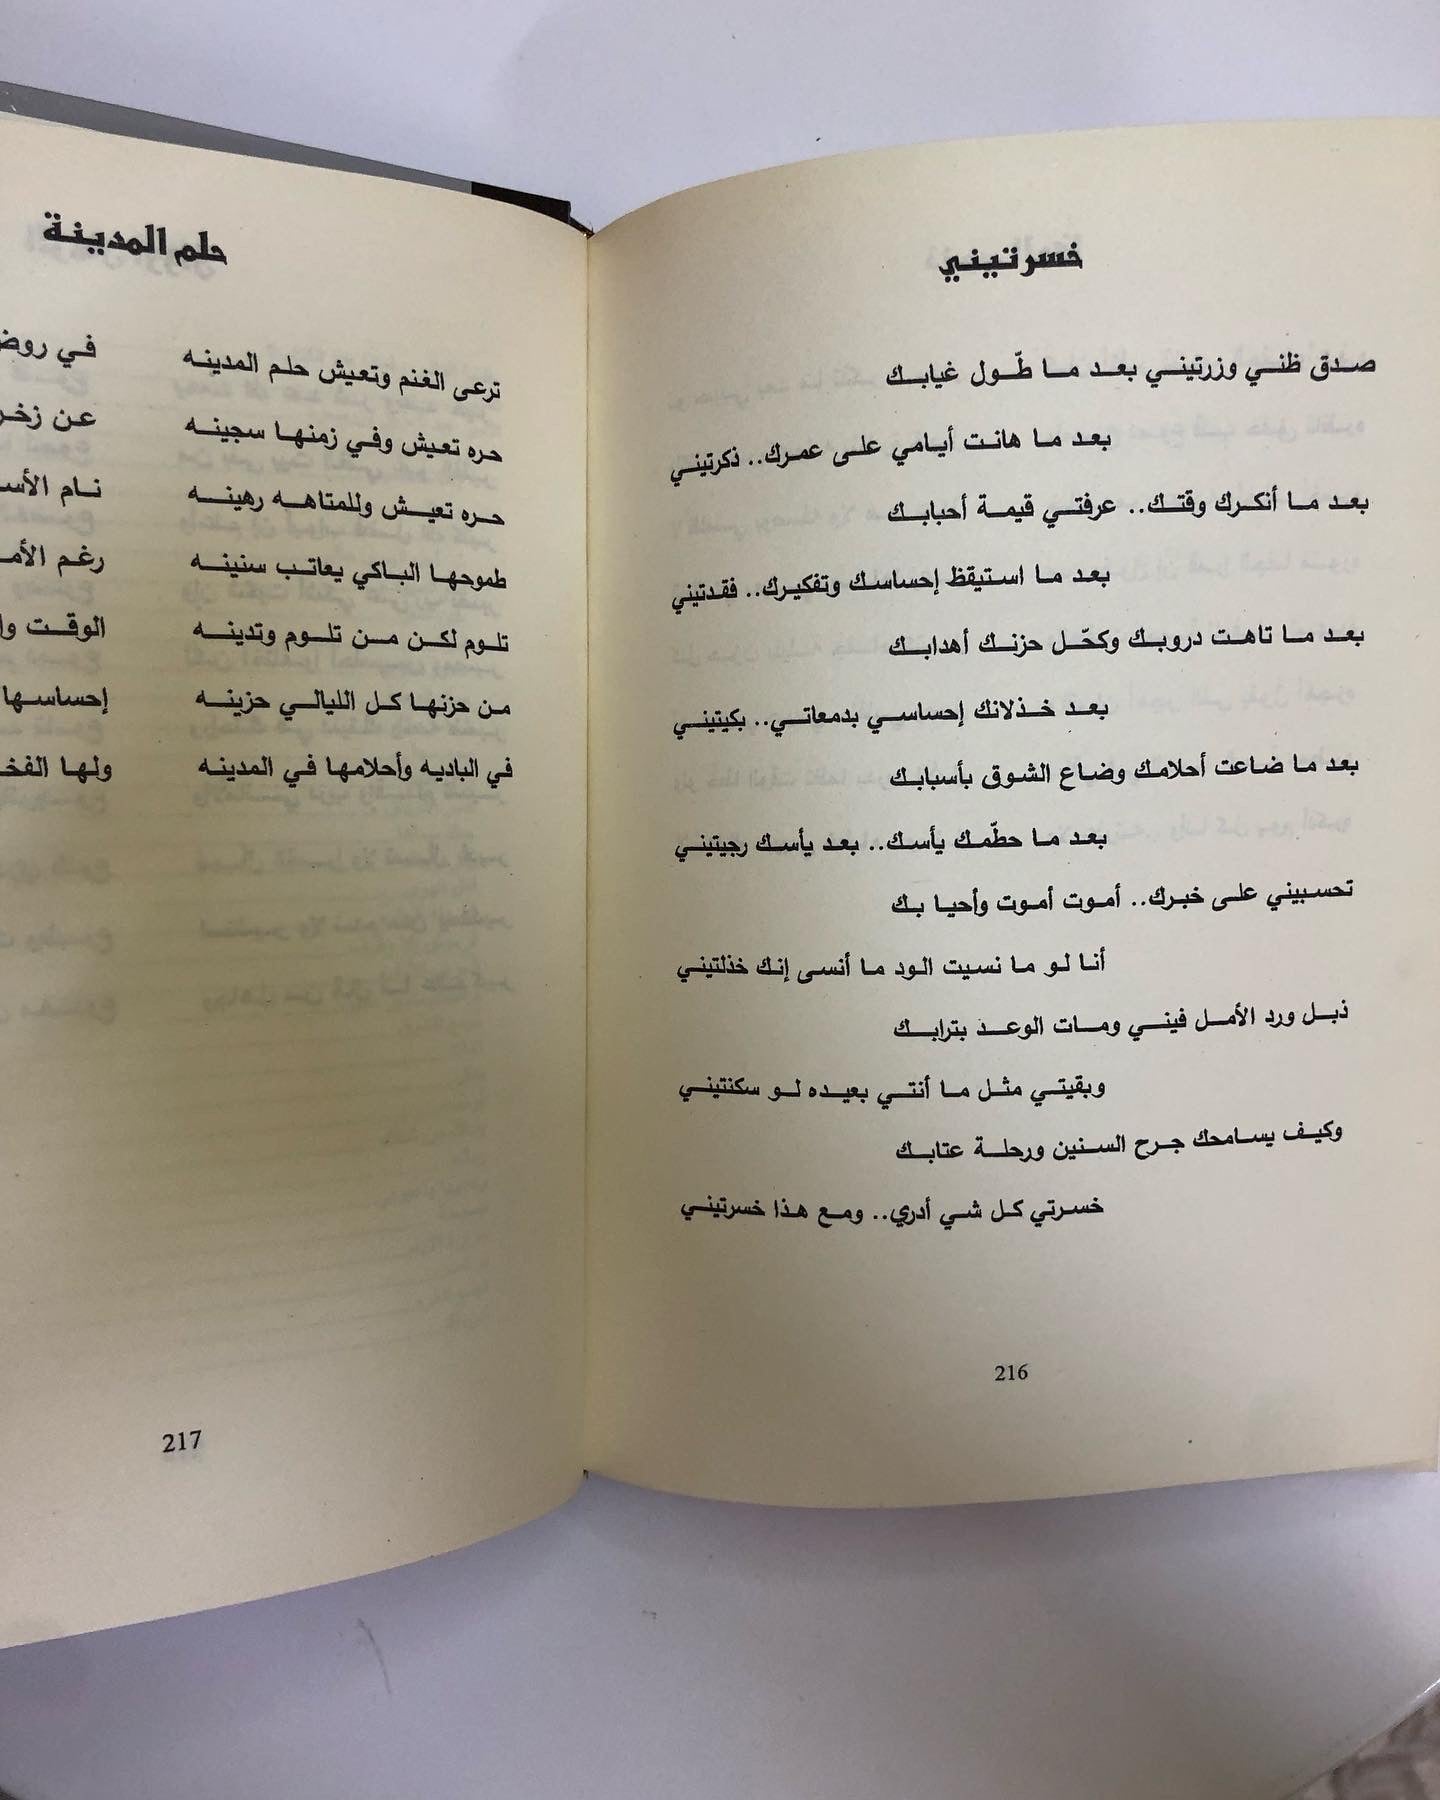 خسرتيني
صدق ظني وزرتيني بعد ما طّول غيابك
بعد ما هانت أيامي على عمرك.. ذكرتيني
بعد ما أنكرك وقتك.. عرفتي قيمة أحبابك
بعد ما استيقظ إحساسك وتفكيرك.. فقدتيني
بعد ما تاهت دروبك وكحّل حزنك أهدابك
بعد خذلانك إحساسي بدمعاتي.. بكيتيني
بعد ما ضاعت أحلامك وضاع الشوق بأسبابك
بعد ما حطّمك يأسك.. بعد يأسك رجيتيني
تحسبيني على خبرك.. أموت أموت وأحيا بك
أنا لو ما نسيت الود ما أنسى إنك خذلتيني
ذبل ورد الأمل فيني ومات الوعد بترابك
وبقيتي مثل ما أنتي بعيده لو سكنتيني
وكيف يسامحك جرح السنين ورحلة عتابك
خسرتي كل شي أدري.. ومع هذا خسرتيني
216
حلم المدينة
ترعى الغنم وتعيش حلم المدينه في
حره تعيش وفي زمنها سجينه عن
حره تعيش وللمتاهه رهينه نام
طموحها الباكي يعاتب سنينه رغم
تلوم لكن من تلوم وتدينه الوقت
من حزنها كل الليالي حزينه إحساسها
في الباديه وأحلامها في المدينه ولها
217